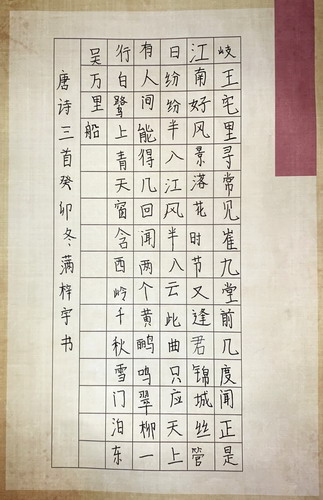 岐王宅里寻常见崔九堂前几度闻正是
江南好风景落花时节又逢君锦城丝管
日纷纷半入江风半入云此曲只应天上
有人间能得几回闻两个黄鹂鸣翠柳一
行白鹭上青天窗含西岭千秋雪门泊东
吴万里船
唐诗三首癸卯冬满梓宇书